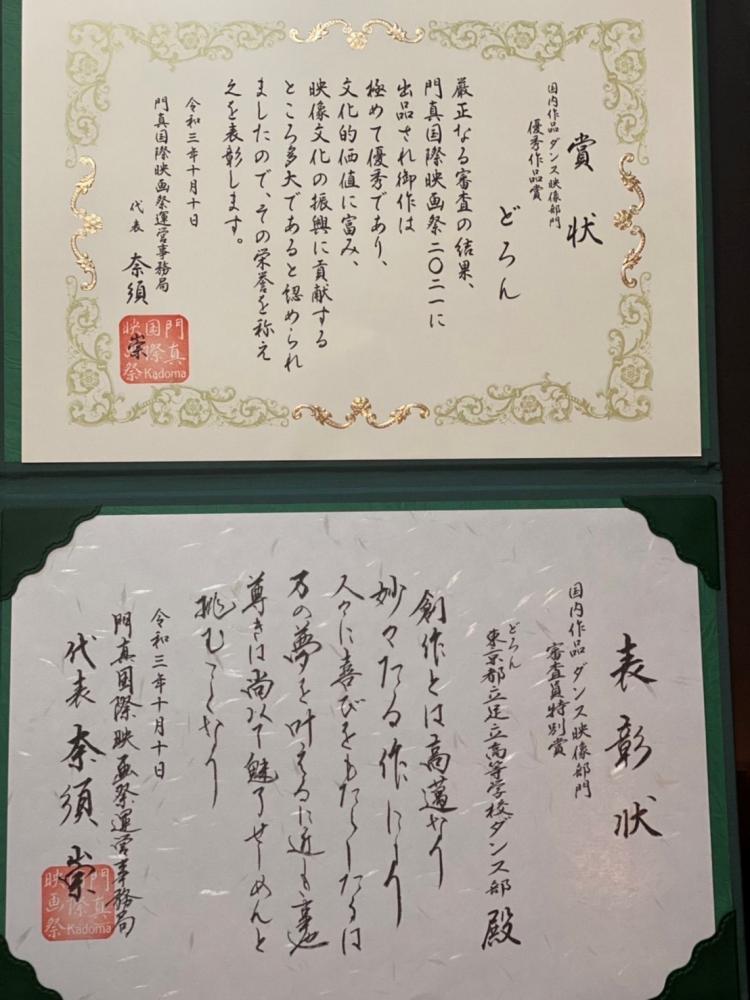 賞状
国内作品 ダンス映像部門
優秀作品賞
どろん
厳正なる審査の結果、
門真国際映画祭二〇二一に
出品され御作は
極めて優秀であり、
文化的価値に富み、
映像文化の振興に貢献する
ところ多大であると認められ
ましたので、その栄誉を称え
之を表彰します。
令和三年十月十日
門真国際映画祭運営事務局
代表 奈須 崇
門真国際映画祭 Kadoma
表彰状
国内作品 ダンス映像部門
審査員特別賞
どろん
東京都立足立高等学校ダンス部 殿
創作とは高邁なり
妙々たる作により
人々に喜びをもたらしたるは
万の夢を叶えるに近しき事也
尊きは尚以て魅了せしめんと
挑むことなり
令和三年十月十日
門真国際映画祭運営事務局
代表 奈須 崇
門真国際映画祭 Kadoma